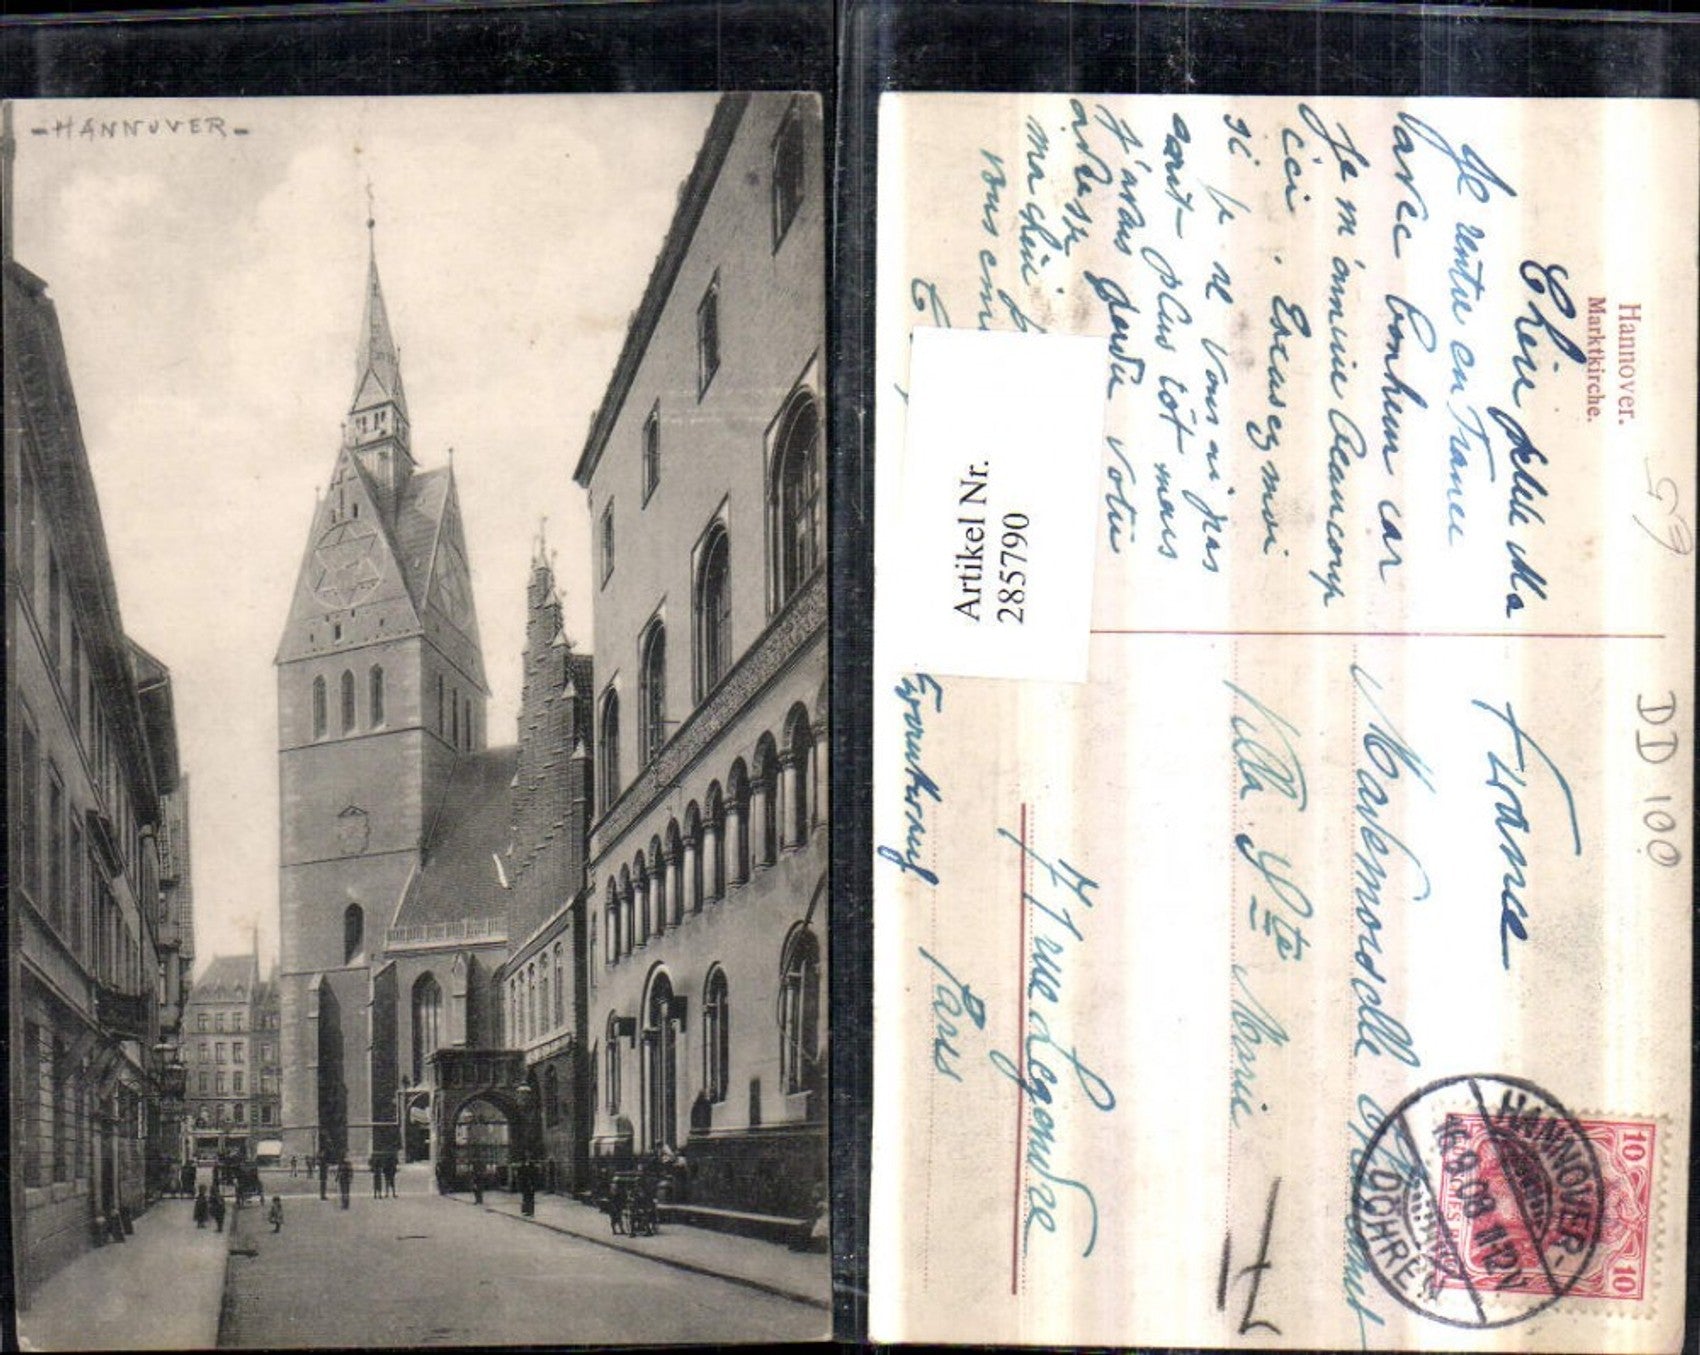 -HANNOVER-
Hannover.
Marktkirche.
59
DD 100
Chère petite Ma
Je rentre en France
avec bonheur car
Je m'ennuie beaucoup
ici. Excusez moi
si je ne vous ai pas
écrit plus tôt mais
j'avais perdu votre
adresse
ma chère
vous em
Artikel Nr.
285790
France
Mademoiselle
Villa Ste Marie
7 rue Legendre
Paris
HANNOVER-
DÖHREN
16.9.08 11-12V.
10 10